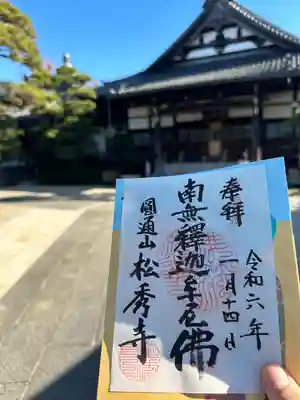 奉拝
令和六年
一月十四日
南無釋迦牟尼佛
圓通山松秀寺